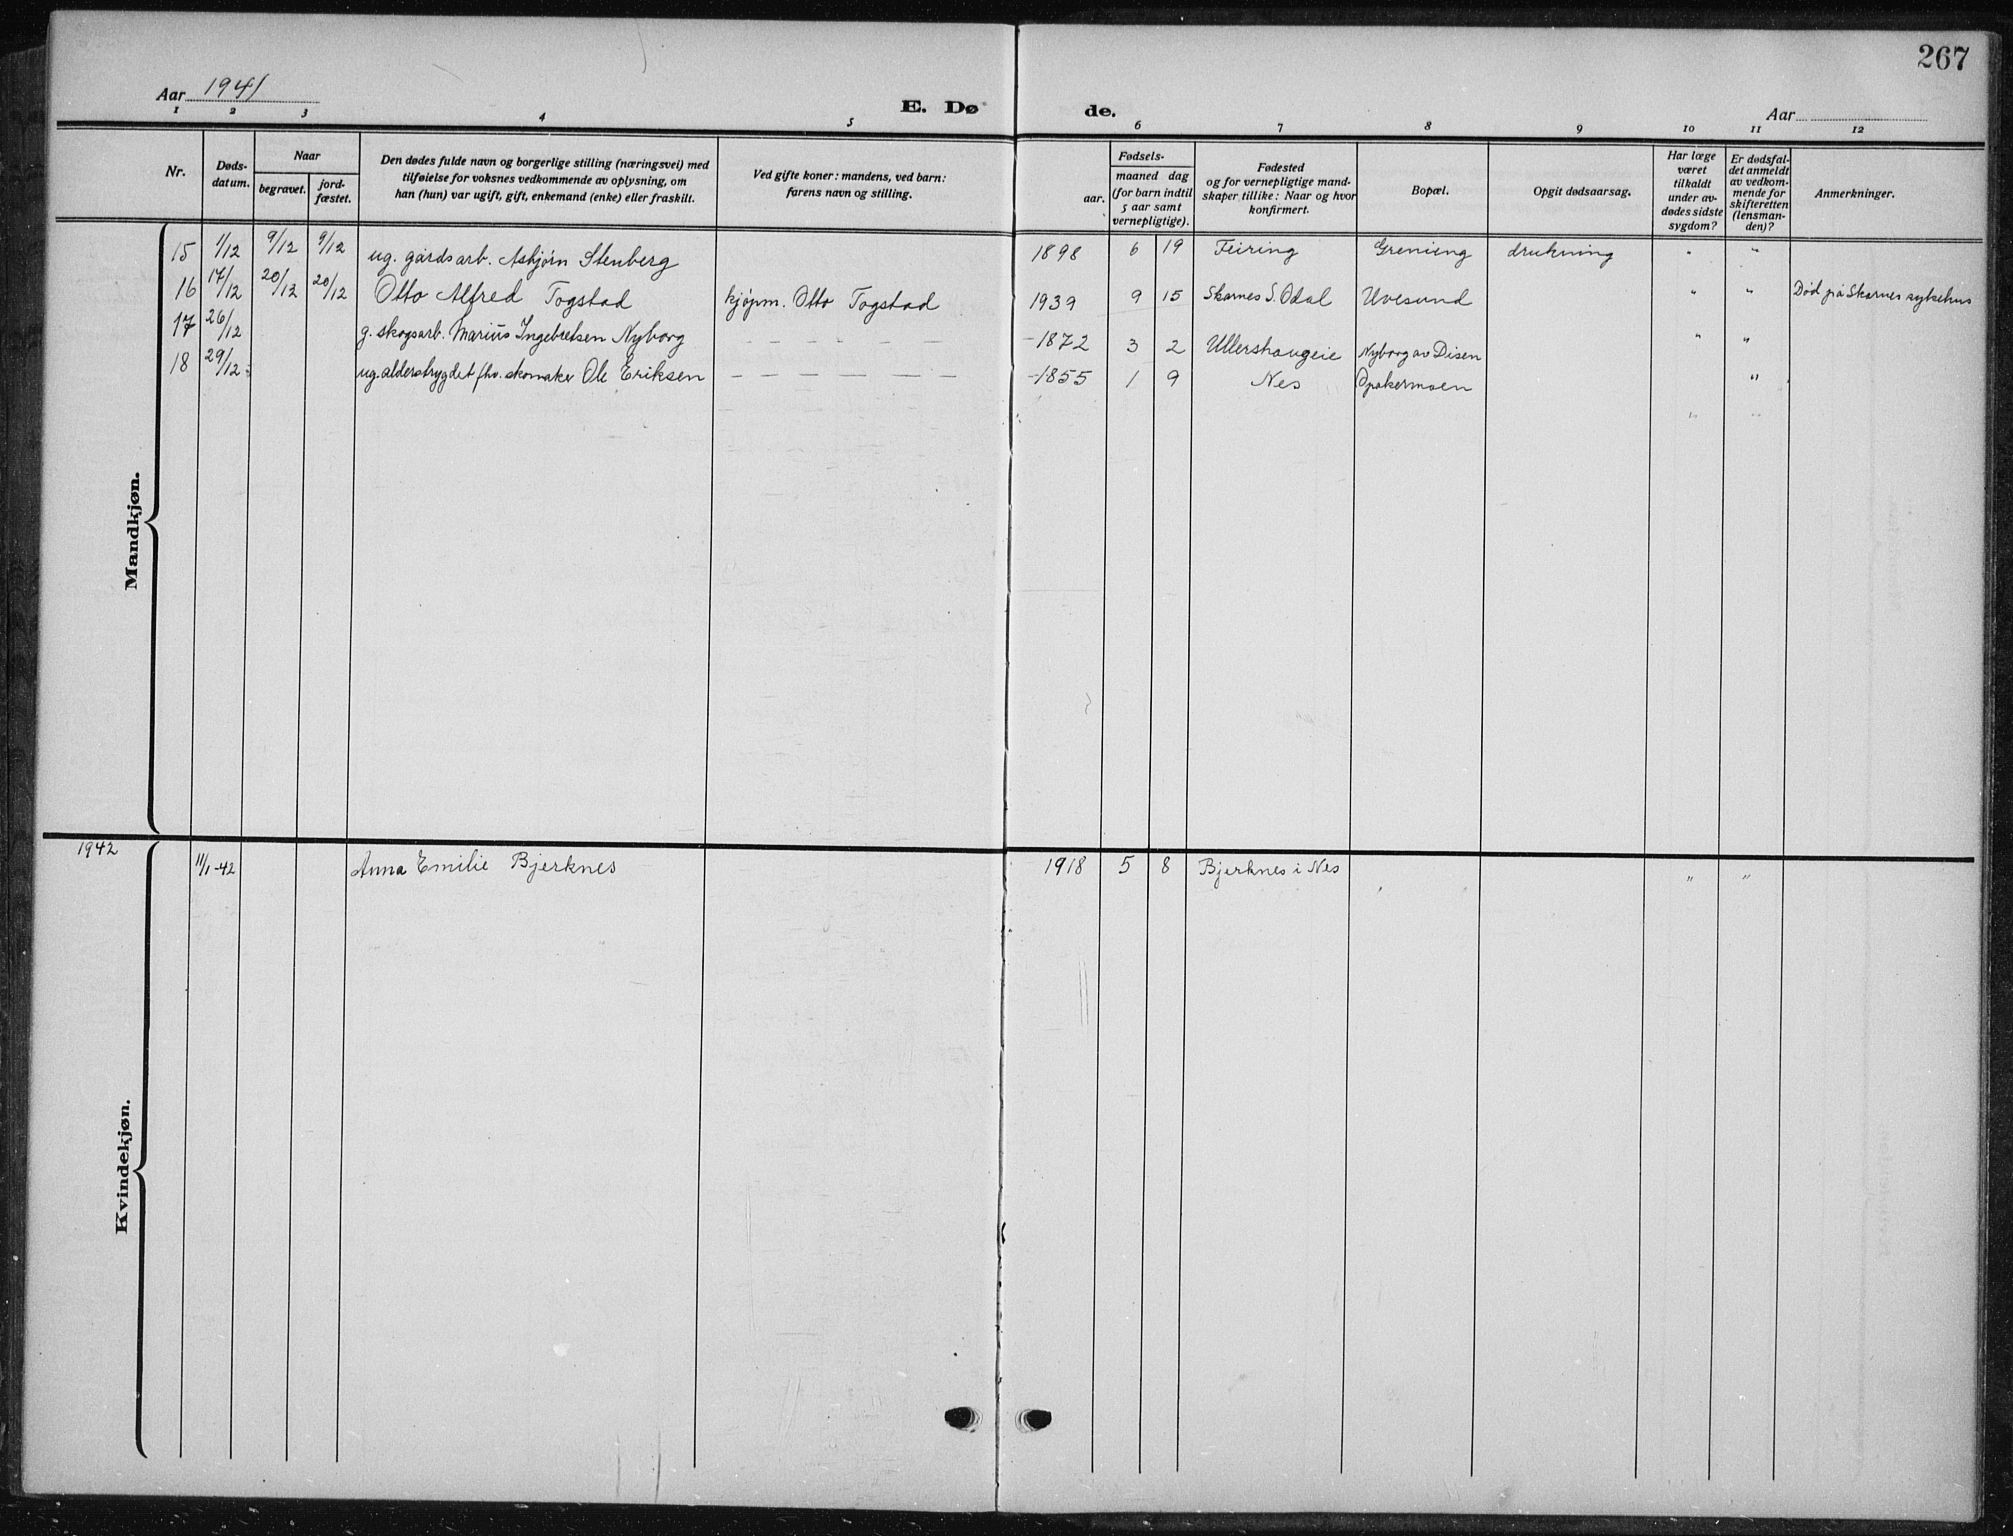 267
Aar 1941
E. Døde.
Aar
1 2 3 4 5 6 7 8 9 10 11 12
Nr.
Dødsdatum.
Naar
begravet.
jordfæstet.
Den dødes fulde navn og borgerlige stilling (næringsvei) med
tilføielse for voksnes vedkommende av oplysning, om
han (hun) var ugift, gift, enkemand (enke) eller fraskilt.
Ved gifte koner: mandens, ved barn:
farens navn og stilling.
Fødsels-
aar.
maaned dag
(for barn indtil
5 aar samt
vernepligtige).
Fødested
og for vernepligtige mand-
skaper tillike: Naar og hvor
konfirmert.
Bopæl.
Opgit dødsaarsag.
Har læge
været
tilkaldt
under av-
dødes sidste
sygdom?
Er dødsfal-
det anmeldt
av vedkom-
mende for
skifteretten
(lensman-
den)?
Anmerkninger.
Mandkjøn.
15 1/12 9/12 9/12 ug. gårdsarb. Asbjørn Stenberg 1898 6 19 Feiring drukning " "
16 17/12 20/12 20/12 Otto Alfred Togstad kjøpm. Otto Togstad 1939 9 15 Skarnes S. Odal Uvesund " " Død på Skarnes sykehus
17 26/12 g. skogsarb. Marius Ingebretsen Nyborg — — — — — — -1872 3 2 Ullershaugeie Nyborg av Disen " "
18 29/12 ug. alderstrygdet fhv. skomaker Ole Eriksen — — — — — — -1855 1 9 Nes Opakermoen "
" "
1942
Kvindekjøn.
11/1-42 Anna Emilie Bjerknes 1918 5 8 Bjerknes i Nes " "